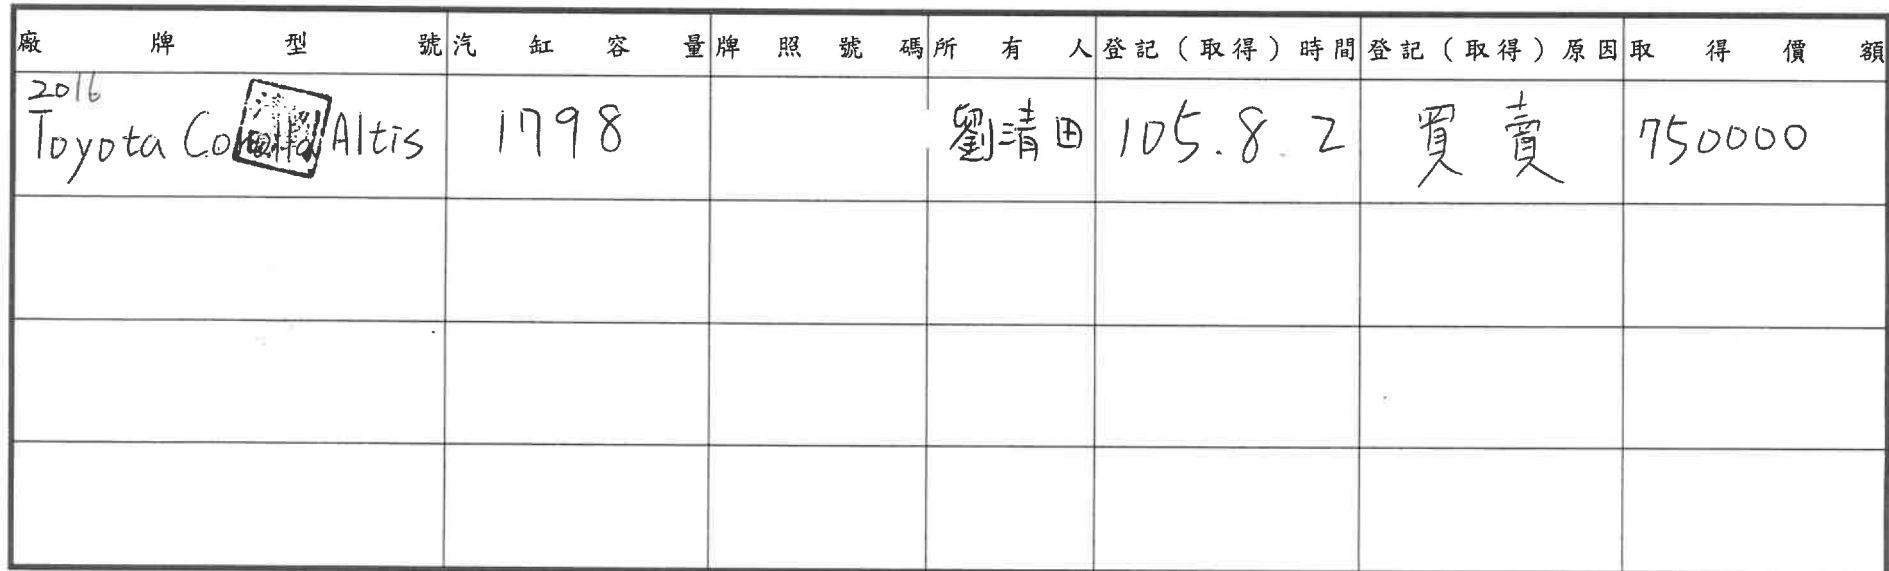 廠牌型號 汽缸容量 牌照號碼 所有人 登記(取得)時間 登記(取得)原因 取得價額
2016
Toyota Corolla Altis 1798 劉清田 105.8.2 買賣 750000